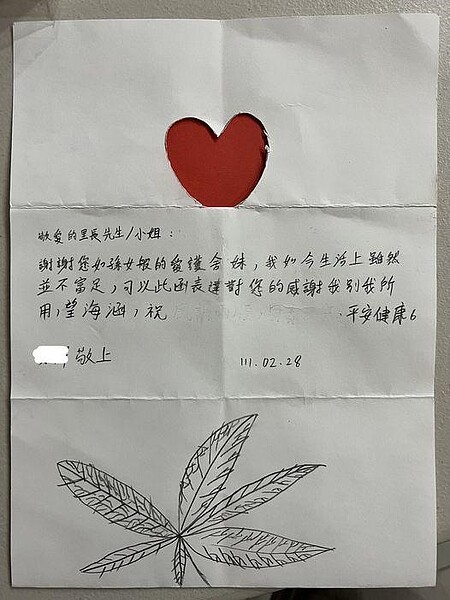 敬愛的里長先生/小姐：
謝謝您如孫女般的愛護舍妹，我如今生活上雖然
並不富足，可以此函表達對您的感謝我別我所
用，望海涵，祝 平安健康
敬上 111.02.28